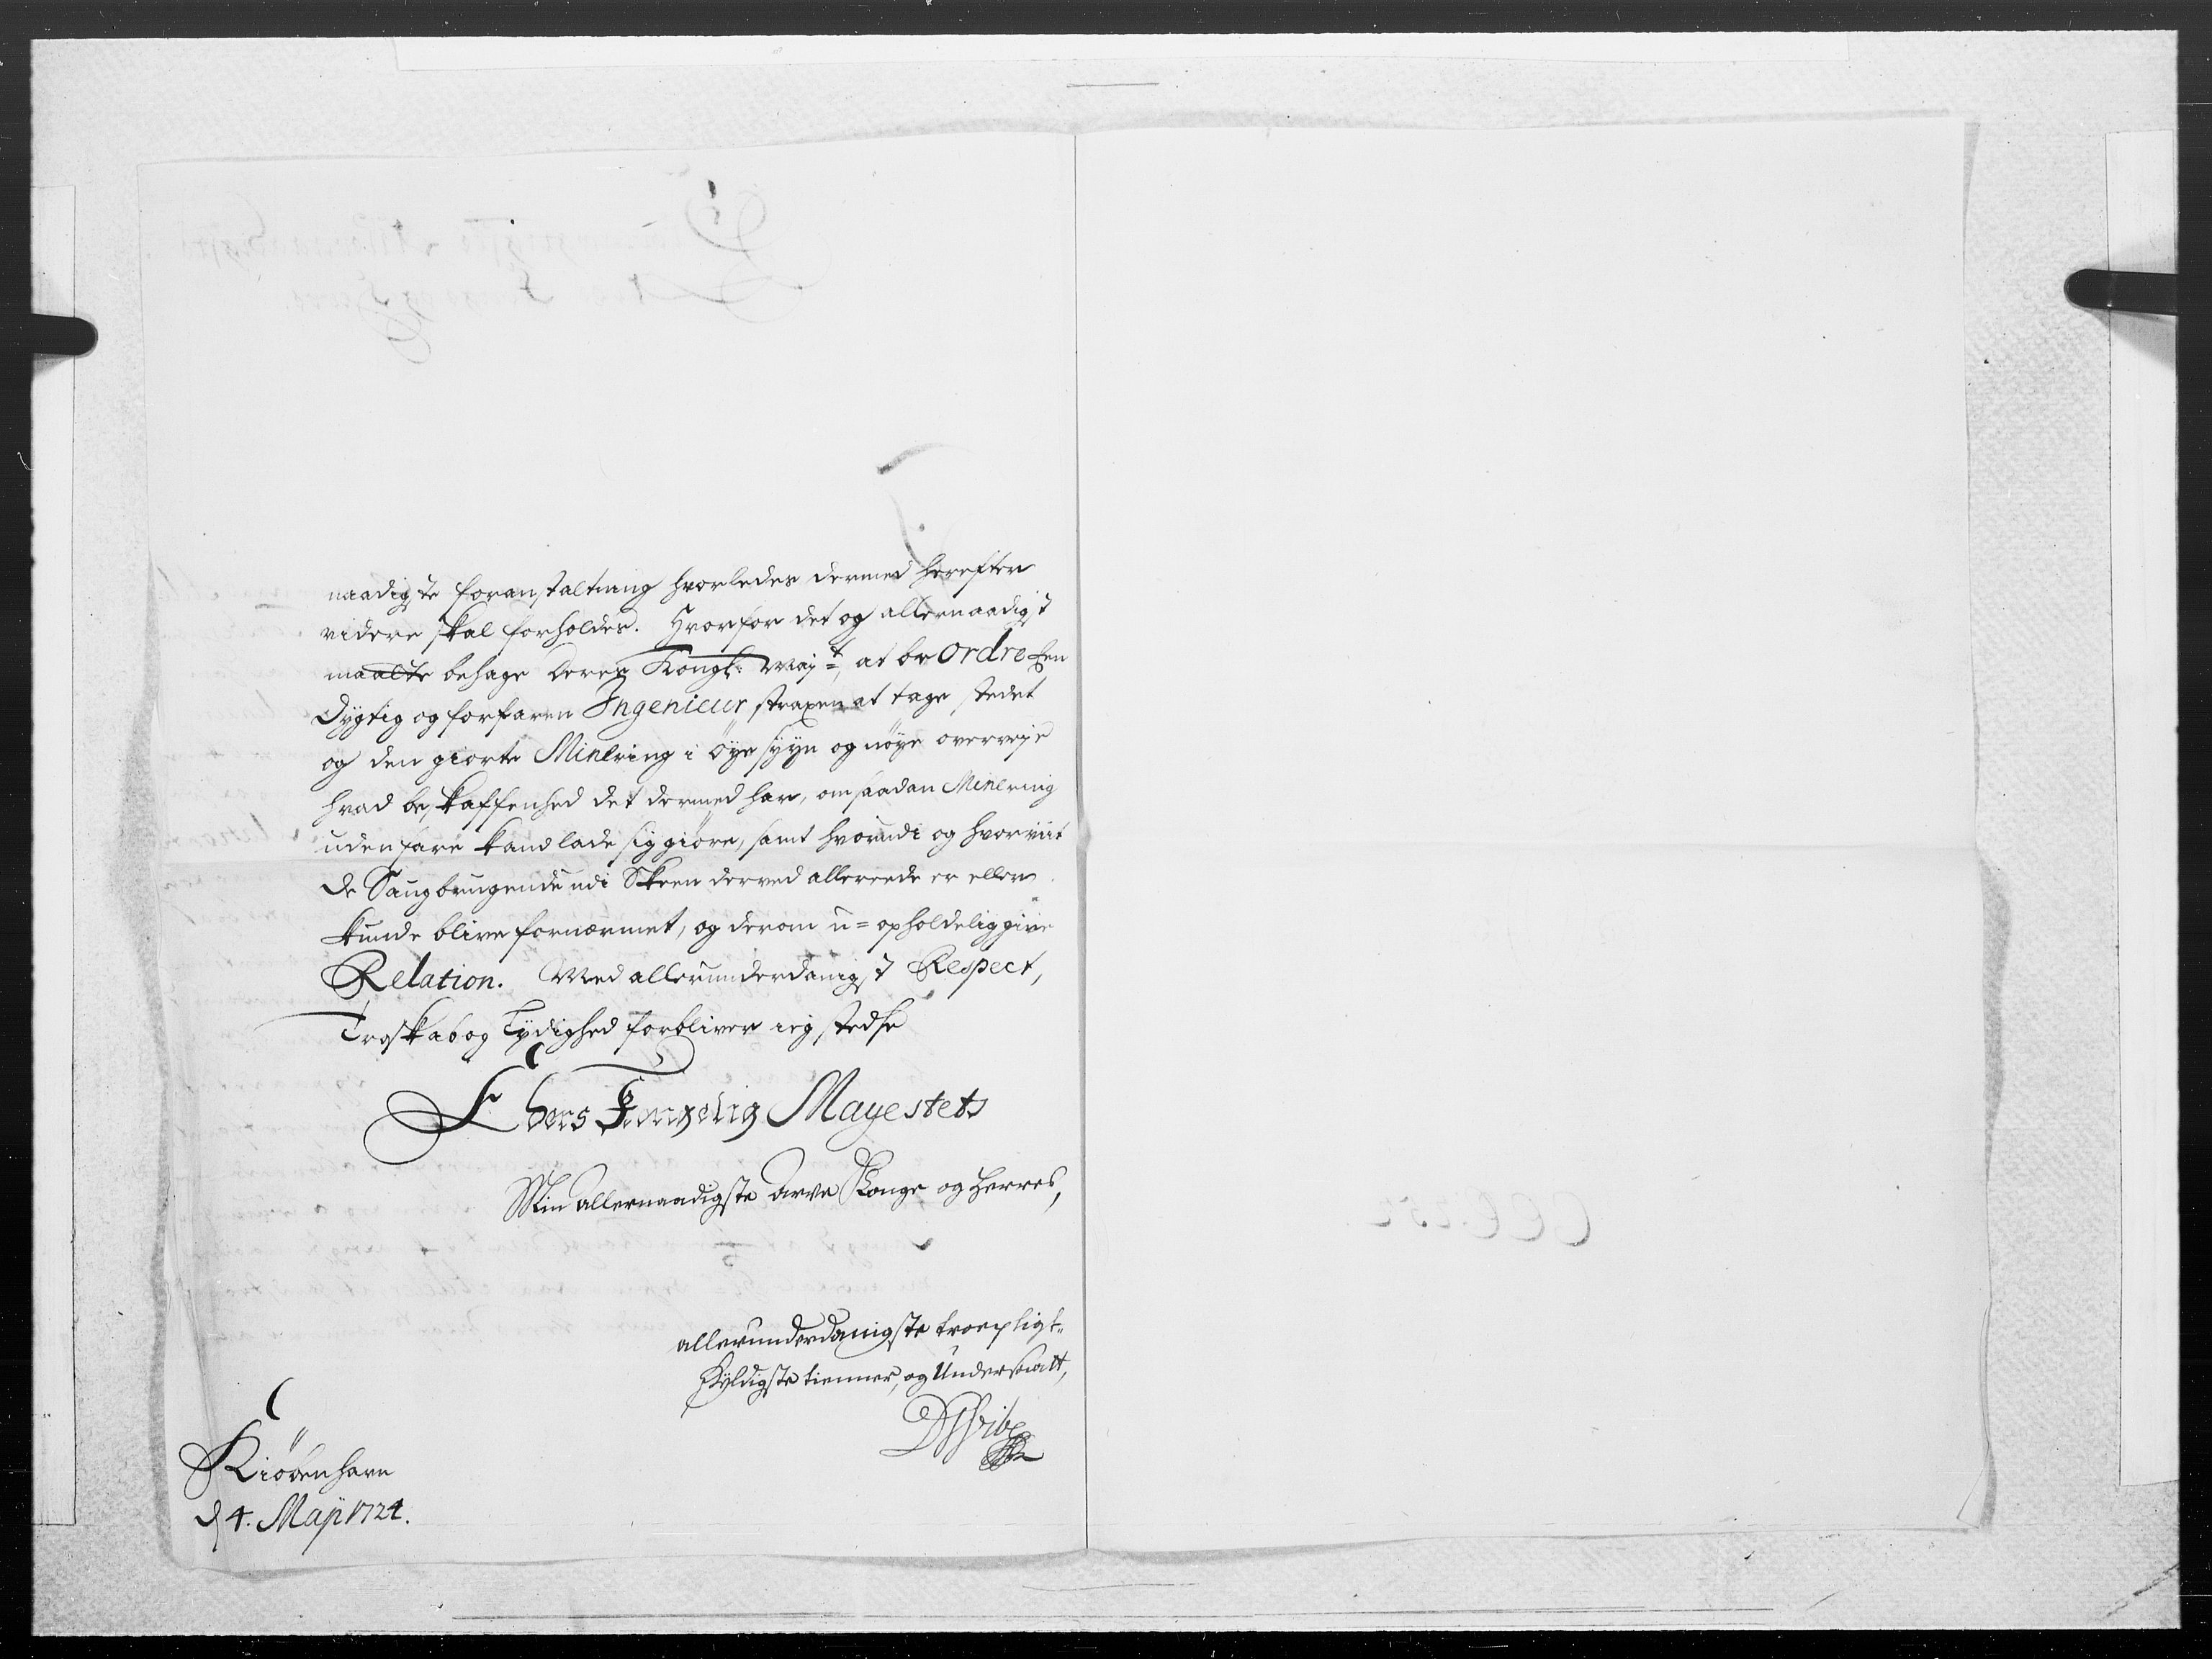 naadigste foranstaltning hvorledes dermed herefter
videre skal forholdes. Hvorfor det og allernaadigst
maatte behage deres Kongl: Maj:t, at beordre Een
dygtig og forfaren Ingenieur, straxen at tage stedet
og den giorte Minering i øye syyn og nøye overveye
hvad beskaffenhed det dermed har, om saadan Minering
uden fare kand lade sig giøre, samt hvorudi og hvorviit
de Saugbrugende udi Skeen derved allereede er eller
kunde blive fornærmet, og derom u=opholdelig give
Relation. Med allerunderdanigst Respect,
Troskab og Lydighed forbliver ieg stedse
Eders Kongelig Mayestets
Min allernaadigste Arve Konge og Herres,
allerunderdanigste troepligt-
skyldigste tienner, og Undersaatt,
Kiøbenhavn
d 4. Maji 1724.